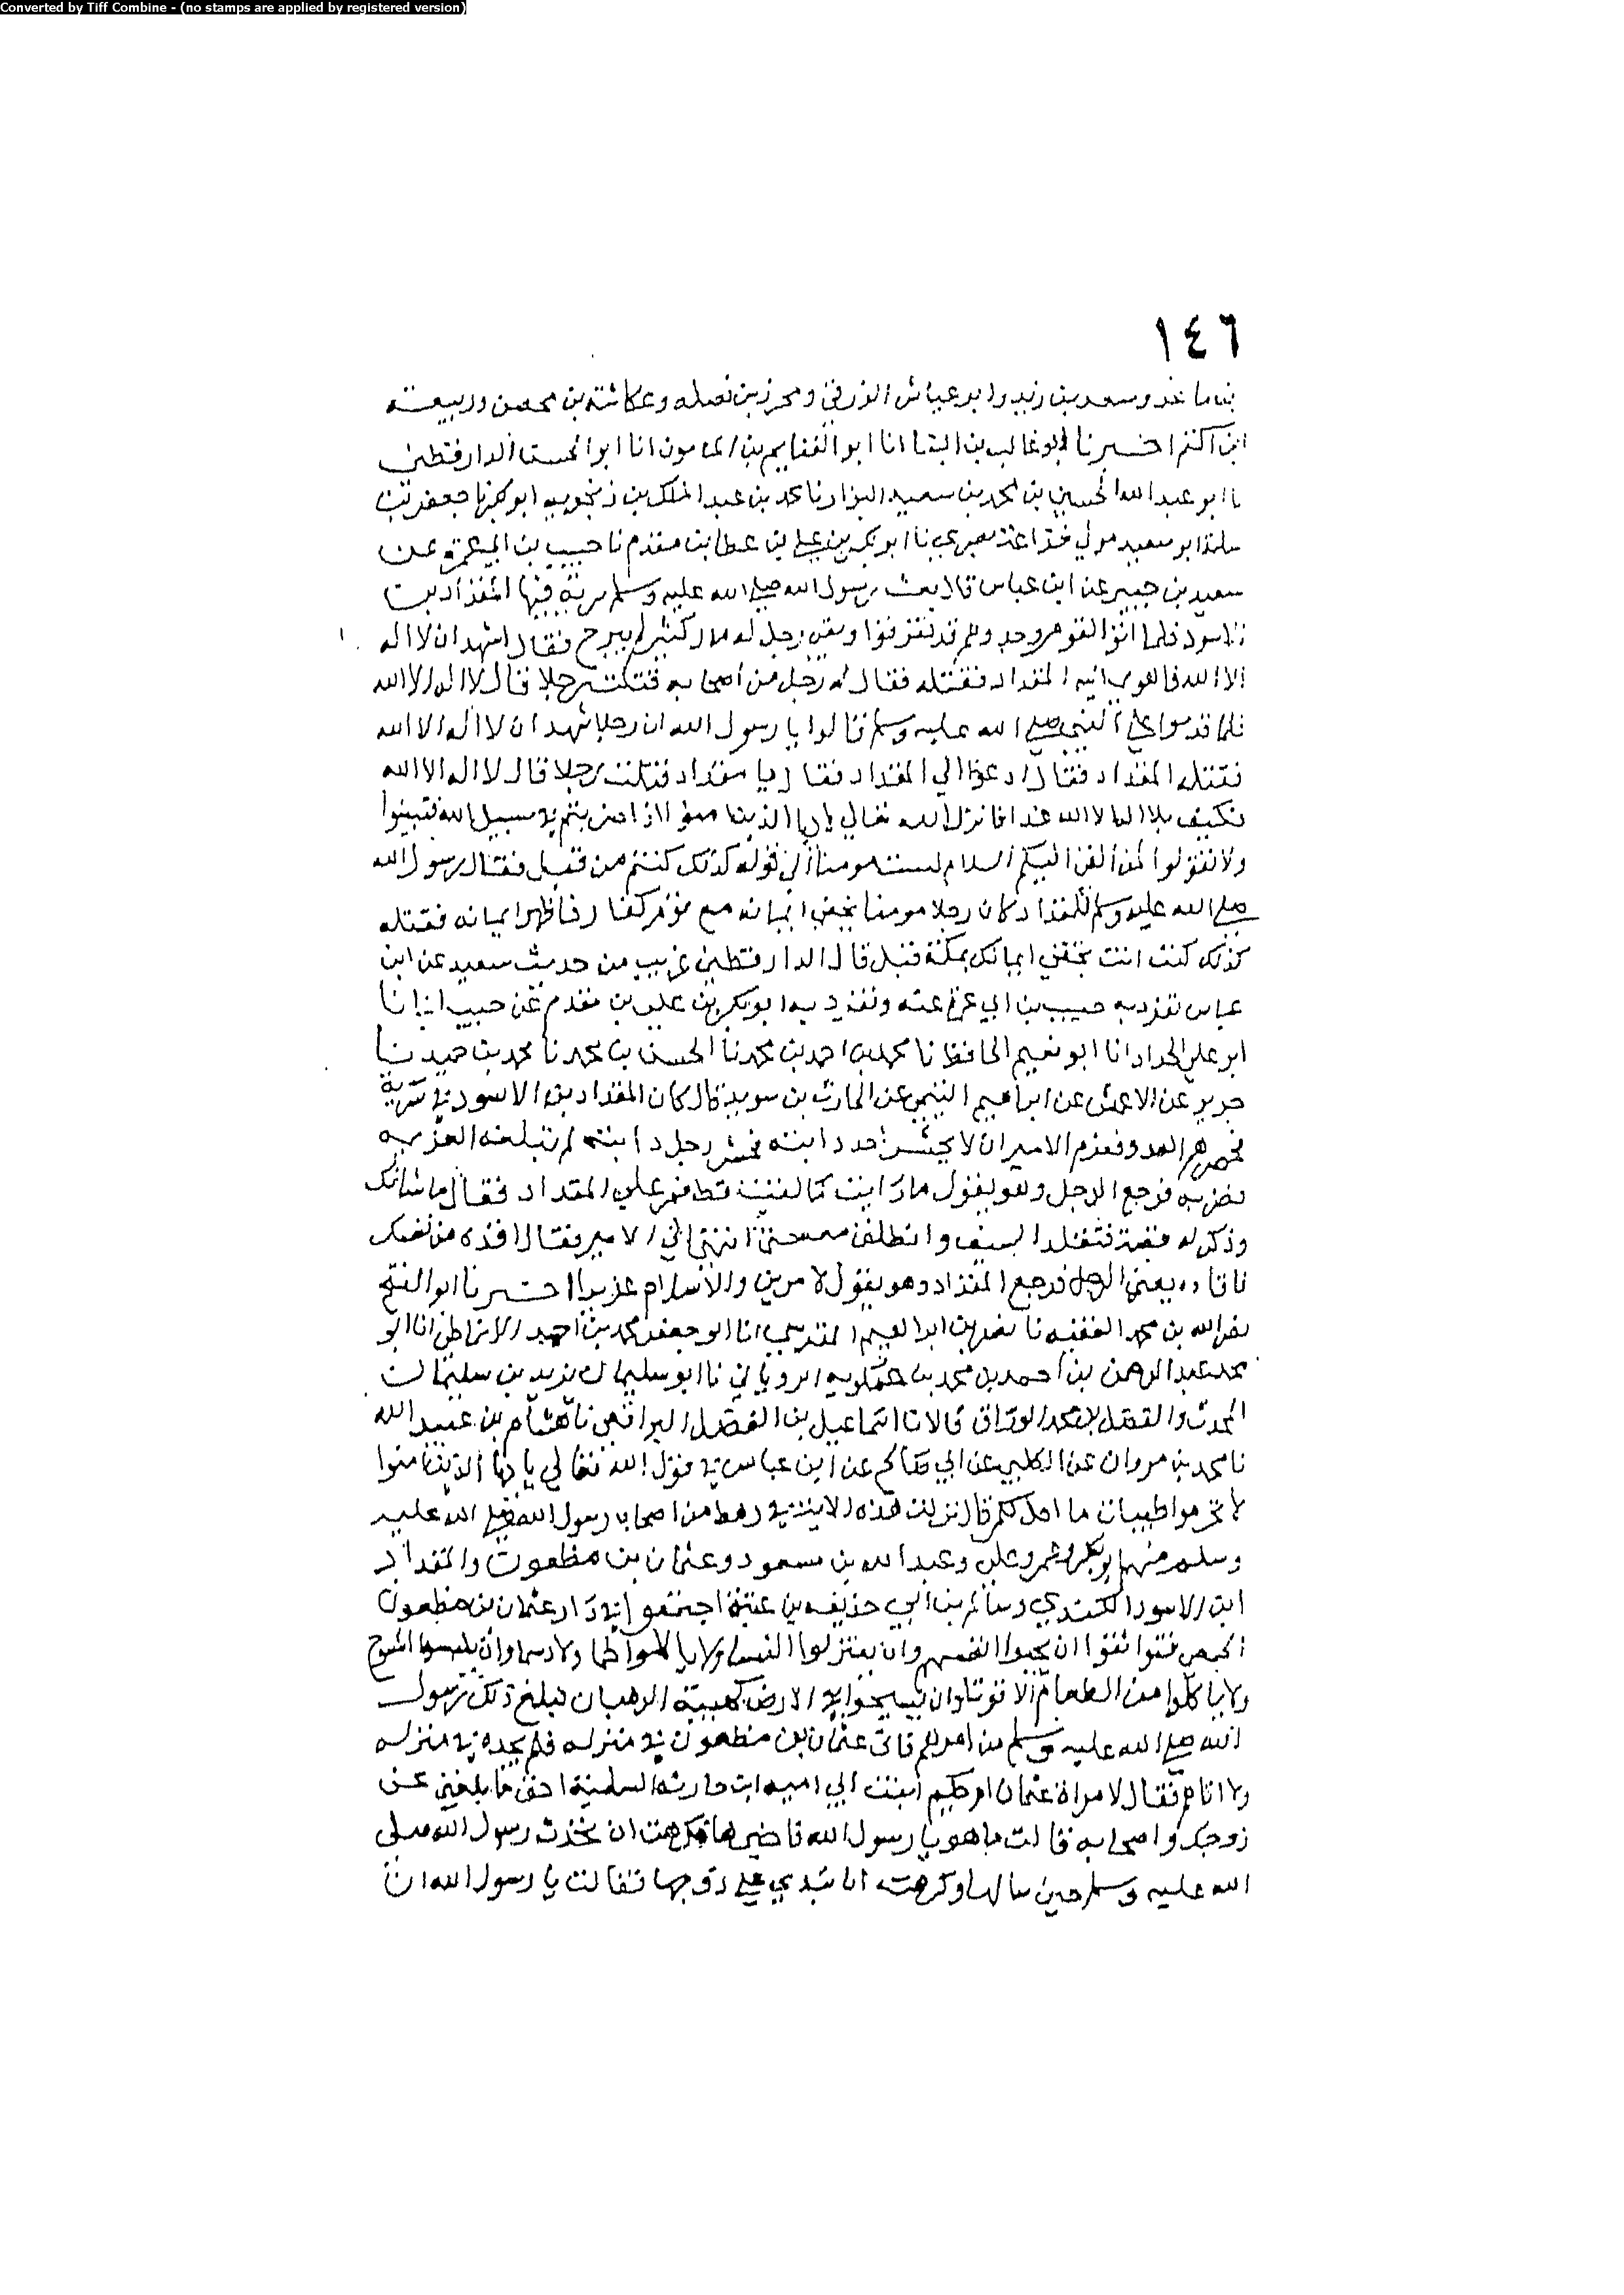 Converted by Tiff Combine - (no stamps are applied by registered version)
١٤٦
بن ماعد وسعد بن زيد وابو عياش الزرقي ومحرز بن نضله وعكاشة بن محصن وربيعة
ابن اكثم اخبرنا ابو غالب بن البنا انا ابو الغنايم بن المامون انا ابو الحسن الدارقطني
نا ابو عبد الله الحسين بن محمد بن سعيد البزار نا محمد بن عبد الملك بن زنجويه ابو بكر نا جعفر بن
سلمة ابو سعيد مولى خزاعة بصري نا ابو بكر بن علي بن عطا بن مقدم نا حبيب بن ابي عمرة عن
سعيد بن جبير عن ابن عباس قال بعث رسول الله صلى الله عليه وسلم سرية فيها المقداد بن
الاسود فلما اتوا القوم وجدوهم قد تفرقوا وبقي رجل له مال كثير لم يبرح فقال اشهد ان لا اله
الا الله فاهوى اليه المقداد فقتله فقال له رجل من اصحابه قتلت رجلا قال لا اله الا الله
فلما قدموا على النبي صلى الله عليه وسلم قالوا يا رسول الله ان رجلا شهد ان لا اله الا الله
فقتله المقداد فقال ادعوا الي المقداد فقال يا مقداد قتلت رجلا قال لا اله الا الله
فكيف بلا اله الا الله غدا فانزل الله تعالي يا ايها الذين امنوا اذا ضربتم في سبيل الله فتبينوا
ولا تقولوا لمن القى اليكم السلام لست مومنا الى قوله كذلك كنتم من قبل فقال رسول الله
صلى الله عليه وسلم للمقداد كان رجلا مومنا يخفي ايمانه مع قوم كفار فاظهر ايمانه فقتلته
كذلك كنت انت تخفي ايمانك بمكة قبل قال الدارقطني غريب من حديث سعيد عن ابن
عباس تفرد به حبيب بن ابي عمرة عنه وتفرد به ابو بكر بن علي بن مقدم عن حبيب انبانا
ابو علي الحداد انا ابو نعيم الحافظ نا محمد بن احمد بن محمد نا الحسن بن محمد نا محمد بن حميد نا
جرير عن الاعمش عن ابراهيم التيمي عن الحارث بن سويد قال كان المقداد بن الاسود في سرية
فحصرهم العدو فعزم الامير ان لا يحشر احد دابته فحشر رجل دابته لم تبلغه العزيمة
فضربه فرجع الرجل وهو يقول ما رايت كما لقيت قط فمر على المقداد فقال ما شانك
وذكر له قصته فتقلد السيف وانطلق معه حتى انتهى الي الامير فقال اقده من نفسك
فاقاده يعني الرجل فرجع المقداد وهو يقول لاموتن والاسلام عزيز اخبرنا ابو الفتح
نصر الله بن محمد الفقيه نا نصر بن ابراهيم المقدسي انا ابو جعفر محمد بن احمد الانماطي انا ابو
محمد عبد الرحمن بن احمد بن محمد بن الروياني نا ابو سليمان بن يزيد بن سليمان
المحدث والفضل بن الوراق قالا نا اسماعيل بن الفضل نا هشام بن عبيد الله
نا محمد بن مروان عن الكلبي عن ابي صالح عن ابن عباس في قول الله تعالى يا ايها الذين امنوا
لا تحرموا طيبات ما احل لكم قال نزلت هذه الاية في رهط من اصحاب رسول الله صلى الله عليه
وسلم منهم ابو بكر وعمر وعلي وعبد الله بن مسعود وعثمان بن مظعون والمقداد
ابن الاسود الكندي وسالم بن ابي حذيفه بن عتبة اجتمعوا في دار عثمان بن مظعون
الجمحي فتواثقوا ان يجبوا انفسهم وان يعتزلوا النساء ولا ياكلوا لحما ولا دسما وان يلبسوا المسوح
ولا ياكلوا من الطعام الا قوتا وان يسيحوا في الارض كهيئة الرهبان فبلغ ذلك رسول
الله صلى الله عليه وسلم من امرهم فاتى عثمان بن مظعون في منزله فلم يجده في منزله
ولا اياهم فقال لامراة عثمان ام حكيم ابنت ابي اميه ابن حارثه السلمية احق ما بلغني عن
زوجك واصحابه قالت ما هو يا رسول الله فاخبرها فكرهت ان تحدث رسول الله صلى
الله عليه وسلم حين سالها وكرهت ان تبدي على زوجها فقالت يا رسول الله ان